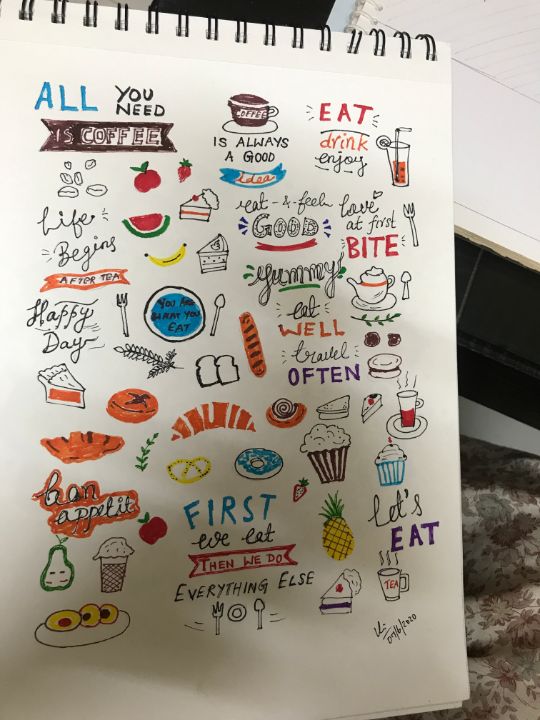 ALL YOU
NEED
IS COFFEE
COFFEE
IS ALWAYS
A GOOD
idea
EAT
drink
enjoy
Life
Begins
AFTER TEA
eat - & - feel
GOOD
love
at first
BITE
Yummy
Happy
Day
YOU ARE
WHAT YOU
EAT
eat
WELL
travel
OFTEN
bon
appetit
FIRST
we eat
THEN WE DO
EVERYTHING ELSE
Let's
EAT
TEA